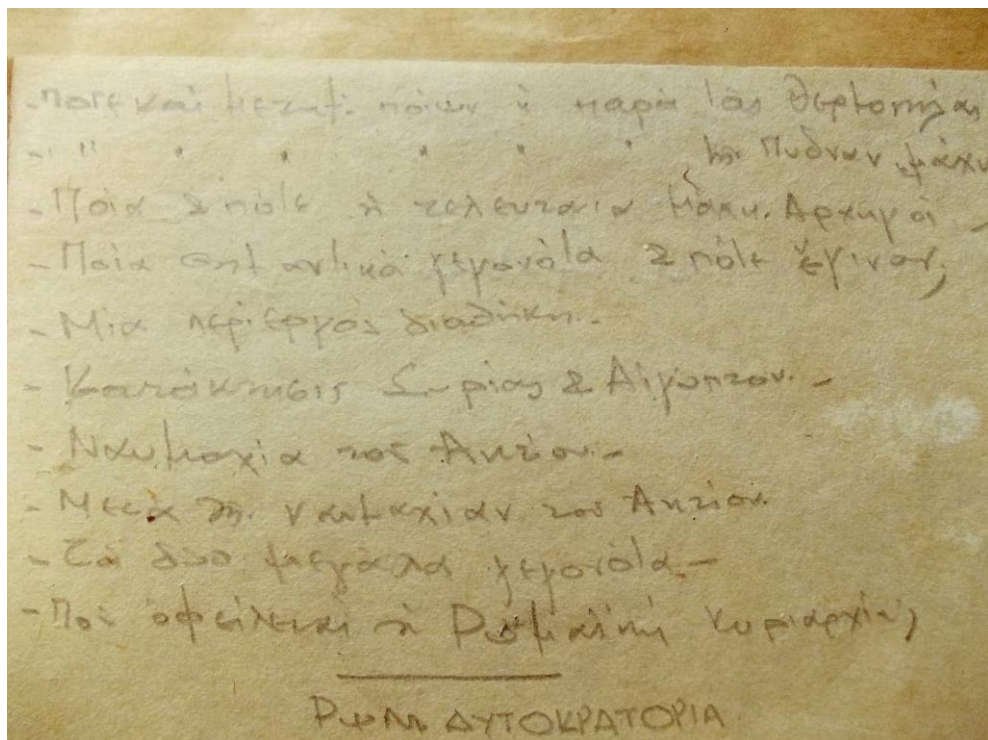 - Πότε καί μεταξ. ποίων ἡ παρά τάς Θερμοπύλας
- " " " " " " τήν Πύδναν μάχη
- Ποία & πότε ἡ τελευταία μάχη. Ἀρχηγοί -
- Ποία σημαντικά γεγονότα & πότε ἔγιναν;
- Μία περίεργος διαθήκη.-
- Κατάκτησις Συρίας & Αἰγύπτου. -
- Ναυμαχία τοῦ Ἀκτίου.-
- Μετά τήν ναυμαχίαν τοῦ Ἀκτίου.
- Τά δύο μεγάλα γεγονότα.-
- Ποῦ ὀφείλεται ἡ Ρωμαϊκή κυριαρχία;
ΡΩΜ ΑΥΤΟΚΡΑΤΟΡΙΑ